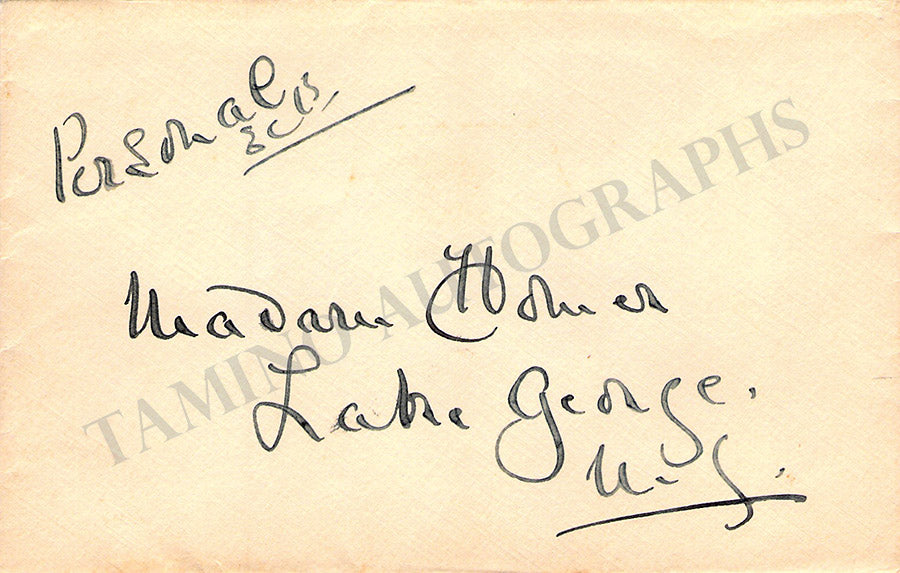 Personal
Madam Homer
Lake George.
N.Y.
TAMINO AUTOGRAPHS